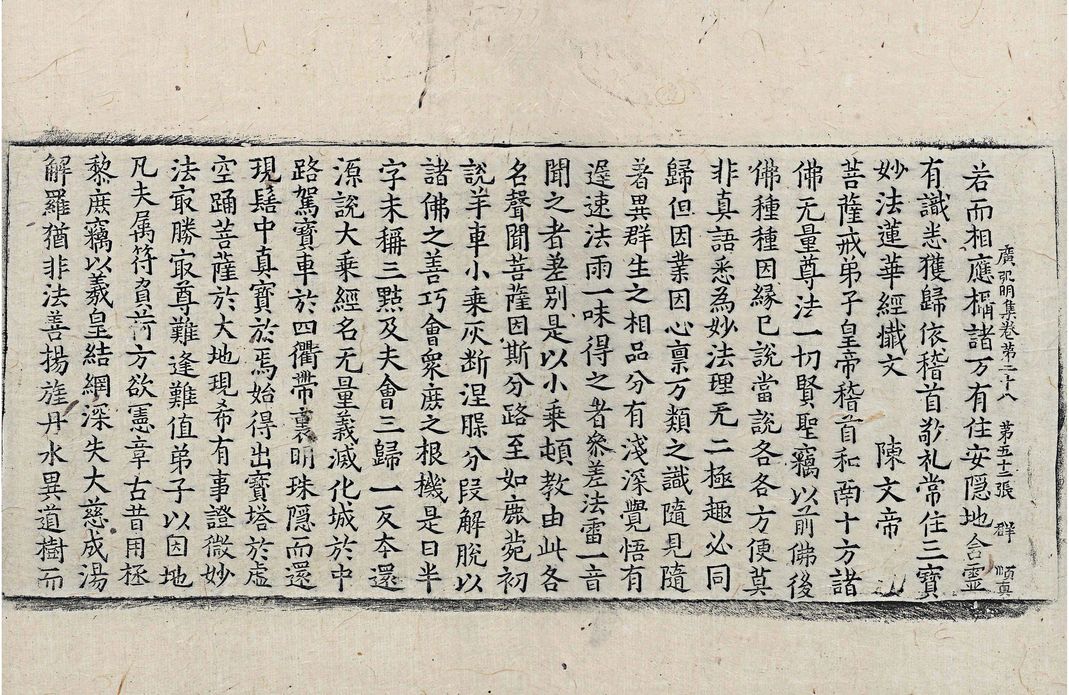 若而相應稱諸万有住安隠地含霊
廣弘明集卷第二十八 第五十張 群
有識悉獲歸依稽首敬礼常住三寶
妙法蓮華經懺文 陳文帝
菩薩戒弟子皇帝稽首和南十方諸
佛无量尊法一切賢聖竊以前佛後
佛種種因緣已說當說各各方便莫
非真語悉為妙法理无二極趣必同
歸但因業因心禀万類之識隨見隨
著異群生之相品分有淺深覺悟有
遲速法雨一味得之者參差法雷一音
聞之者差別是以小乗頓教由此各
名聲聞菩薩因斯分路至如鹿苑初
說羊車小乗灰断涅槃分段解脫以
諸佛之善巧會衆庶之根機是曰半
字未稱三點及夫會三歸一反夲還
源說大乗經名无量義滅化城於中
路駕寶車於四衢帶裏明珠隠而還
現髻中真寶於焉始得出寶塔於虚
空踊菩薩於大地現希有事證微妙
法冣勝冣尊難逢難值弟子以因地
凡夫属符負荷方欲憲章古昔用拯
黎庶竊以羲皇結網深失大慈成湯
解羅猶非法善揚旌丹水異道樹而